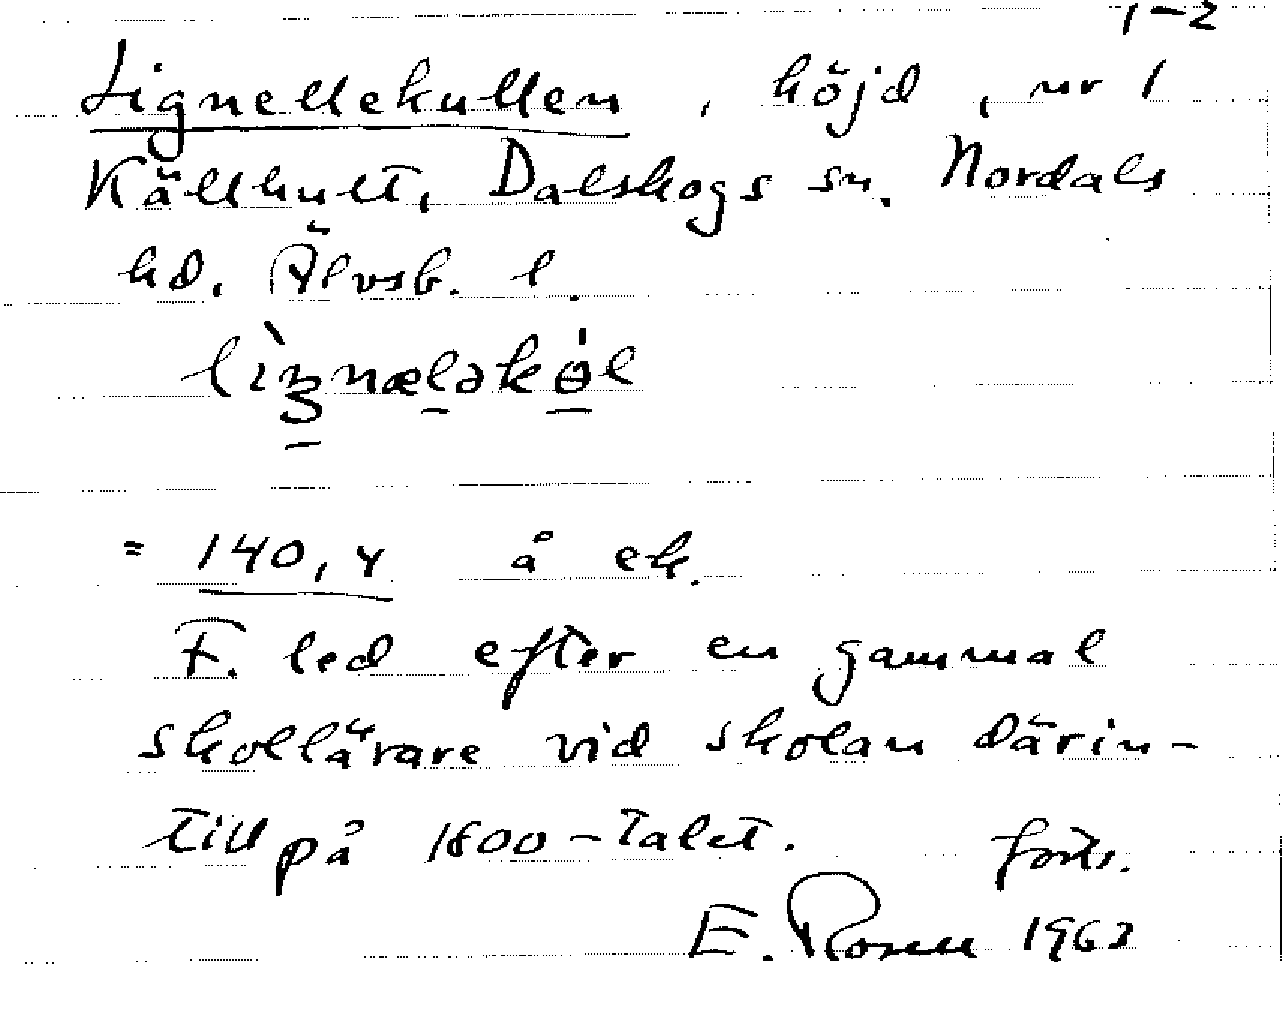 1-2
Lignellekullen, höjd, nr 1
Källhult, Dalskogs sn. Nordals
hd. Älvsb. l.
= 140,4 å ek.
F. led efter en gammal
skollärare vid skolan därin-
till på 1800-talet. forts.
E. Rosell 1962